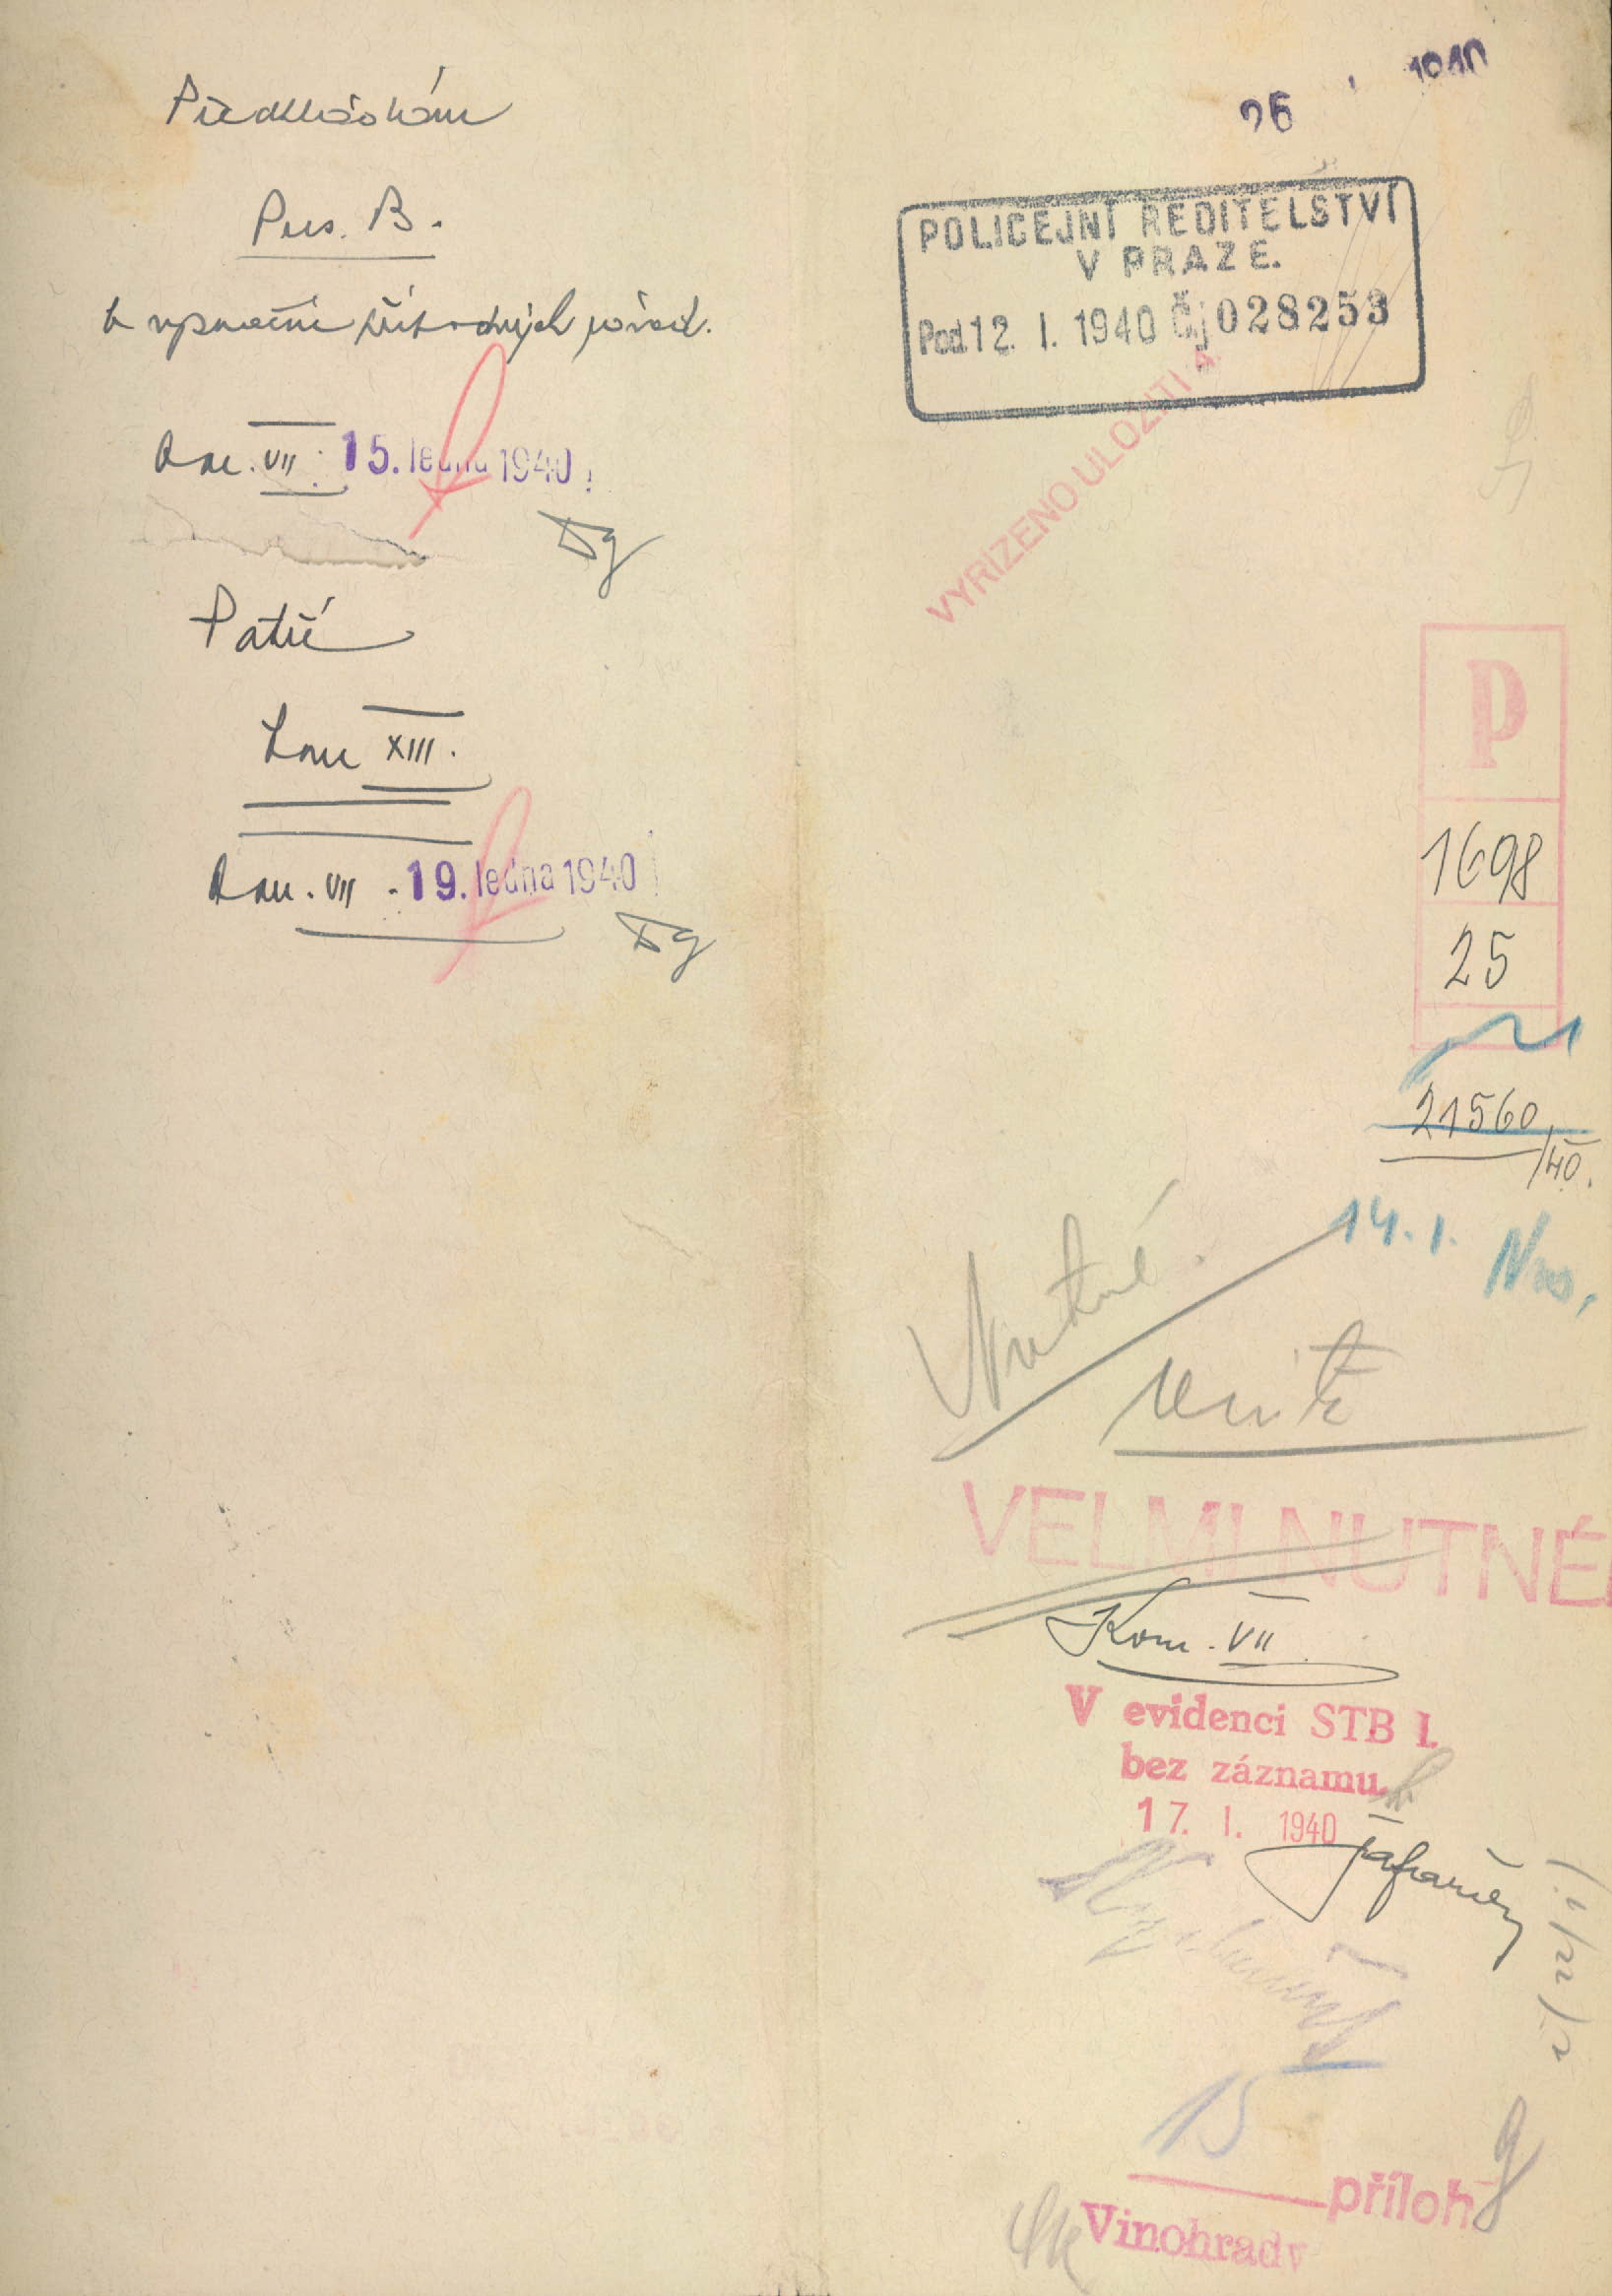 Předkládám
Pres. B.
k vyznačení trestních závad.
Kom. VII. 15. ledna 1940
Patří
Kom XIII.
Kom. VII - 19. ledna 1940
26 1940
POLICEJNÍ ŘEDITELSTVÍ
V PRAZE.
Pod 12. I. 1940 Čj 028253
VYŘÍZENO ULOŽITI
P
1698
25
21560/40.
14. I.
Nutné.
VELMI NUTNÉ
Kom. VII
V evidenci STB I.
bez záznamu
17. I. 1940
15
příloh
Vinohrady